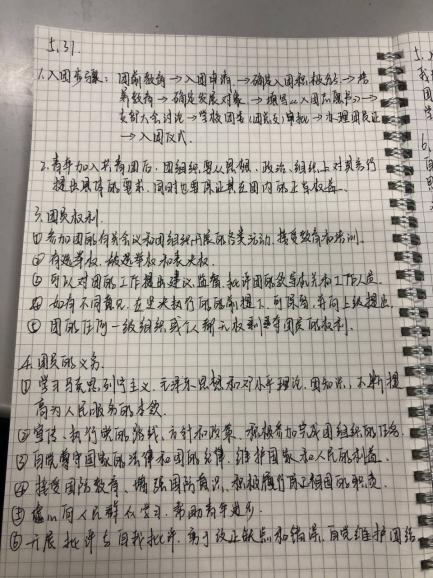 5.31.
1.入团步骤: 团前教育→入团申请→确定入团积极分子→培
养教育→确定发展对象→填写《入团志愿书》→
支部大会讨论→学校团委(团总支)审批→办理团员证
→入团仪式.
2.青年加入共青团后,团组织要从思想、政治、组织上对其进行
提出具体的要求,同时也要保证其在团内的正当权益.
3.团员权利.
①参加团的有关会议和团组织开展的各类活动,接受教育和培训.
②有选举权、被选举权和表决权.
③可以对团的工作提出建议,监督、批评团的领导机关和工作人员.
④如有不同意见,在坚决执行的前提下,可保留,并向上级提出.
⑤团的任何一级组织或个人都无权剥夺团员的权利.
4.团员的义务.
①学习马克思列宁主义、毛泽东思想和邓小平理论,团知识,不断提
高为人民服务的本领.
②宣传、执行党的路线、方针和政策、积极参加完成团组织的任务.
③自觉遵守国家的法律和团的纪律,维护国家和人民的利益.
④接受国防教育、增强国防意识、积极履行保卫祖国的职责.
⑤虚心向人民群众学习,帮助青年进步
⑥开展批评与自我批评,勇于改正缺点和错误,自觉维护团结
5.
6.